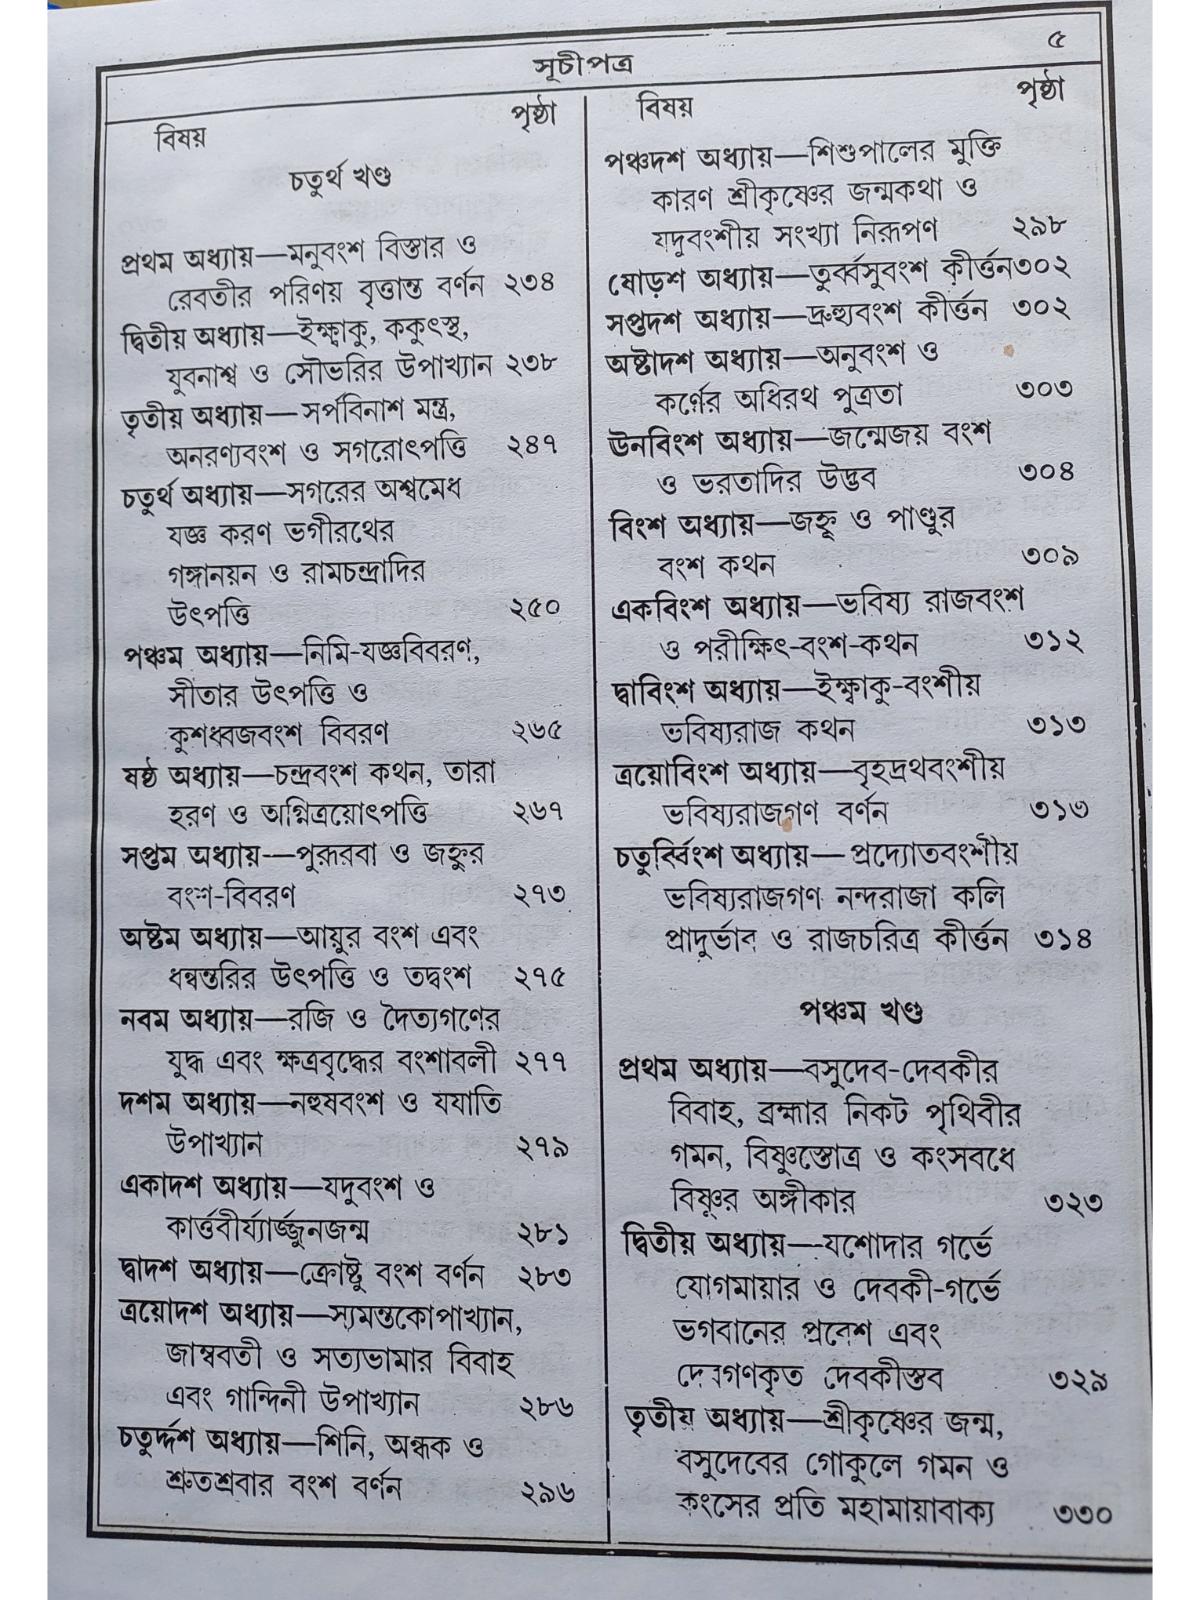 ৫
সূচীপত্র
বিষয় পৃষ্ঠা
চতুর্থ খণ্ড
প্রথম অধ্যায়—মনুবংশ বিস্তার ও
রেবতীর পরিণয় বৃত্তান্ত বর্ণন ২৩৪
দ্বিতীয় অধ্যায়—ইক্ষ্বাকু, ককুৎস্থ,
যুবনাশ্ব ও সৌভরির উপাখ্যান ২৩৮
তৃতীয় অধ্যায়—সর্পবিনাশ মন্ত্র,
অনরণ্যবংশ ও সগরোৎপত্তি ২৪৭
চতুর্থ অধ্যায়—সগরের অশ্বমেধ
যজ্ঞ করণ ভগীরথের
গঙ্গানয়ন ও রামচন্দ্রাদির
উৎপত্তি ২৫০
পঞ্চম অধ্যায়—নিমি-যজ্ঞবিবরণ,
সীতার উৎপত্তি ও
কুশধ্বজবংশ বিবরণ ২৬৫
ষষ্ঠ অধ্যায়—চন্দ্রবংশ কথন, তারা
হরণ ও অগ্নিত্রয়োৎপত্তি ২৬৭
সপ্তম অধ্যায়—পুরূরবা ও জহ্নুর
বংশ-বিবরণ ২৭৩
অষ্টম অধ্যায়—আয়ুর বংশ এবং
ধন্বন্তরির উৎপত্তি ও তদ্বংশ ২৭৫
নবম অধ্যায়—রজি ও দৈত্যগণের
যুদ্ধ এবং ক্ষত্রবৃদ্ধের বংশাবলী ২৭৭
দশম অধ্যায়—নহুষবংশ ও যযাতি
উপাখ্যান ২৭৯
একাদশ অধ্যায়—যদুবংশ ও
কার্ত্তবীর্য্যার্জ্জুনজন্ম ২৮১
দ্বাদশ অধ্যায়—ক্রোষ্টু বংশ বর্ণন ২৮৩
ত্রয়োদশ অধ্যায়—স্যমন্তকোপাখ্যান,
জাম্ববতী ও সত্যভামার বিবাহ
এবং গান্দিনী উপাখ্যান ২৮৬
চতুর্দ্দশ অধ্যায়—শিনি, অন্ধক ও
শ্রুতশ্রবার বংশ বর্ণন ২৯৬
বিষয় পৃষ্ঠা
পঞ্চদশ অধ্যায়—শিশুপালের মুক্তি
কারণ শ্রীকৃষ্ণের জন্মকথা ও
যদুবংশীয় সংখ্যা নিরূপণ ২৯৮
ষোড়শ অধ্যায়—তুর্ব্বসুবংশ কীর্ত্তন৩০২
সপ্তদশ অধ্যায়—দ্রুহ্যুবংশ কীর্ত্তন ৩০২
অষ্টাদশ অধ্যায়—অনুবংশ ও
কর্ণের অধিরথ পুত্রতা ৩০৩
ঊনবিংশ অধ্যায়—জন্মেজয় বংশ
ও ভরতাদির উদ্ভব ৩০৪
বিংশ অধ্যায়—জহ্নু ও পাণ্ডুর
বংশ কথন ৩০৯
একবিংশ অধ্যায়—ভবিষ্য রাজবংশ
ও পরীক্ষিৎ-বংশ-কথন ৩১২
দ্বাবিংশ অধ্যায়—ইক্ষ্বাকু-বংশীয়
ভবিষ্যরাজ কথন ৩১৩
ত্রয়োবিংশ অধ্যায়—বৃহদ্রথবংশীয়
ভবিষ্যরাজগণ বর্ণন ৩১৩
চতুর্ব্বিংশ অধ্যায়—প্রদ্যোতবংশীয়
ভবিষ্যরাজগণ নন্দরাজা কলি
প্রাদুর্ভাব ও রাজচরিত্র কীর্ত্তন ৩১৪
পঞ্চম খণ্ড
প্রথম অধ্যায়—বসুদেব-দেবকীর
বিবাহ, ব্রহ্মার নিকট পৃথিবীর
গমন, বিষ্ণুস্তোত্র ও কংসবধে
বিষ্ণুর অঙ্গীকার ৩২৩
দ্বিতীয় অধ্যায়—যশোদার গর্ভে
যোগমায়ার ও দেবকী-গর্ভে
ভগবানের প্রবেশ এবং
দেবগণকৃত দেবকীস্তব ৩২৯
তৃতীয় অধ্যায়—শ্রীকৃষ্ণের জন্ম,
বসুদেবের গোকুলে গমন ও
কংসের প্রতি মহামায়াবাক্য ৩৩০